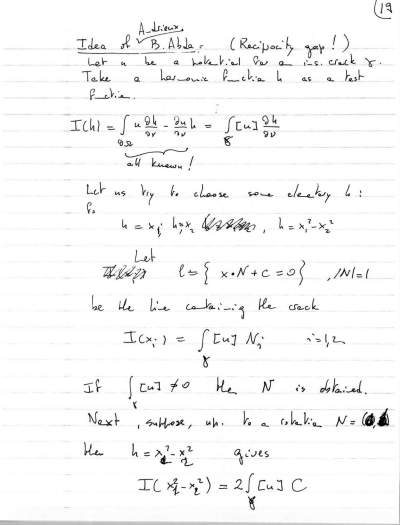 19
Andrieux,
Idea of B. Abda = (Reciprocity gap!)
Let u be a potential for an ins. crack γ.
Take a harmonic function h as a test
function.
I(h) = ∫_∂Ω u ∂h/∂ν - ∂u/∂ν h = ∫_γ [u] ∂h/∂ν
all known!
Let us try to choose some elementary h :
h = x₁, h = x₂ , h = x₁² - x₂²
Let
l = { x•N + C = 0 } , |N| = 1
be the line containing the crack
I(x_i) = ∫_γ [u] N_i i = 1,2
If ∫_γ [u] ≠ 0 then N is obtained.
Next, suppose, up to a rotation N = (0,1)
then h = x₁² - x₂² gives
I(x₁² - x₂²) = 2∫_γ [u] C